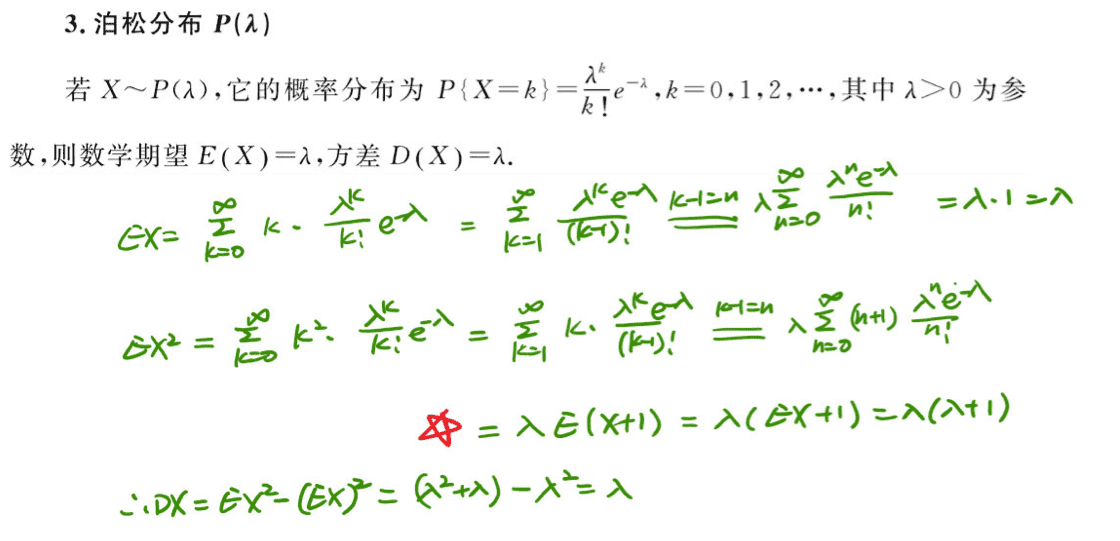 3. 泊松分布 P(λ)
若 X~P(λ),它的概率分布为 P{X=k}=\frac{λ^k}{k!}e^{-λ},k=0,1,2,…,其中 λ>0 为参
数,则数学期望 E(X)=λ,方差 D(X)=λ.
EX= \sum_{k=0}^{∞} k · \frac{λ^k}{k!} e^{-λ} = \sum_{k=1}^{∞} \frac{λ^k e^{-λ}}{(k-1)!} \xlongequal{k-1=n} λ \sum_{n=0}^{∞} \frac{λ^n e^{-λ}}{n!} = λ·1=λ
EX² = \sum_{k=0}^{∞} k² · \frac{λ^k}{k!} e^{-λ} = \sum_{k=1}^{∞} k · \frac{λ^k e^{-λ}}{(k-1)!} \xlongequal{k-1=n} λ \sum_{n=0}^{∞} (n+1) \frac{λ^n e^{-λ}}{n!}
☆ = λ E(X+1) = λ(EX+1) = λ(λ+1)
∴DX = EX²-(EX)² = (λ²+λ) - λ² = λ